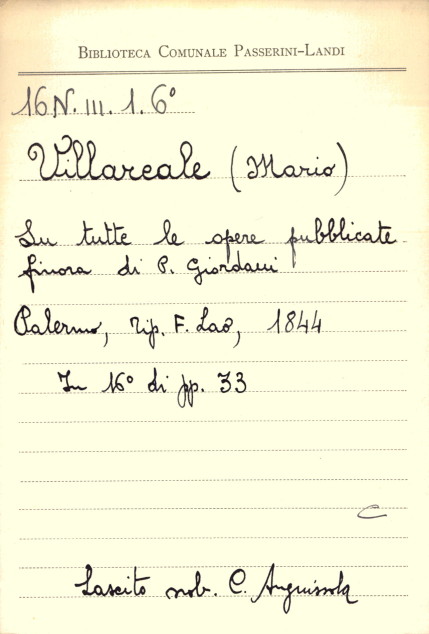 BIBLIOTECA COMUNALE PASSERINI-LANDI
16N. III. 1. 6°
Villareale (Mario)
Su tutte le opere pubblicate
finora di P. Giordani
Palermo, tip. F. Lao, 1844
In 16° di pp. 33
C
Lascito nob. C. Anguissola